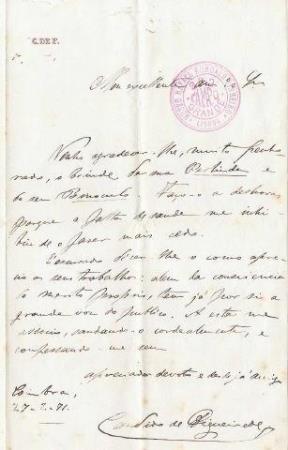 C. DE F.
Meu excellente am.º e Sr.
Venho agradecer-lhe, muito penho-
rado, o brinde da sua Perlinda e
do seu Faço-o a deshoras
porque a falta de saude me inhi-
biu de o fazer mais cedo.
Escusado dizer-lhe o como apre-
cio os seus trabalhos: alem da consciencia
do merito proprio, tem já por si a
grande voz do publico. A esta me
associo, saudando-o cordealmente, e
confessando-me seu
apreciador devoto e desde já amigo
Coimbra,
27-2-91.
Candido de Figueiredo